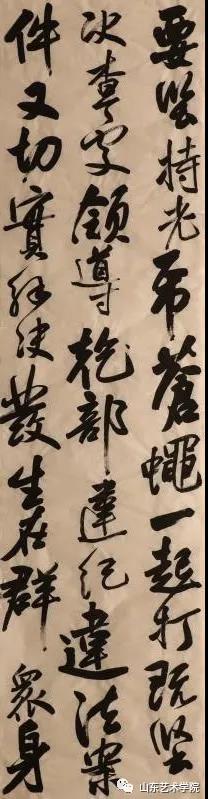 要坚持老虎蒼蠅一起打既坚
决查处領導乾部違紀違法案
件又切實解决發生在群衆身
山东艺术学院